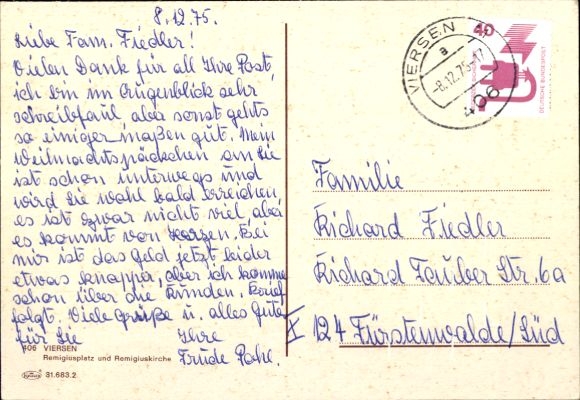 8.12.75.
Liebe Fam. Fiedler!
Vielen Dank für all Ihre Post,
ich bin im Augenblick sehr
schreibfaul aber sonst gehts
so einiger maßen gut. Mein
Weihnachtspäckchen an Sie
ist schon unterwegs und
wird Sie wohl bald erreichen
es ist zwar nicht viel, aber
es kommt von Herzen. Bei
mir ist das Geld jetzt leider
etwas knapper, aber ich komme
schon über die Runden. Brief
folgt. Viele Grüße u. alles Gute
für Sie Ihre
Trude Pahl.
406 VIERSEN
Remigiusplatz und Remigiuskirche
31.683.2
VIERSEN 1
a
-8.12.75-17
406
40
DEUTSCHE BUNDESPOST
Familie
Richard Fiedler
Richard Tauber Str. 6a
X 124 Fürstenwalde/Süd